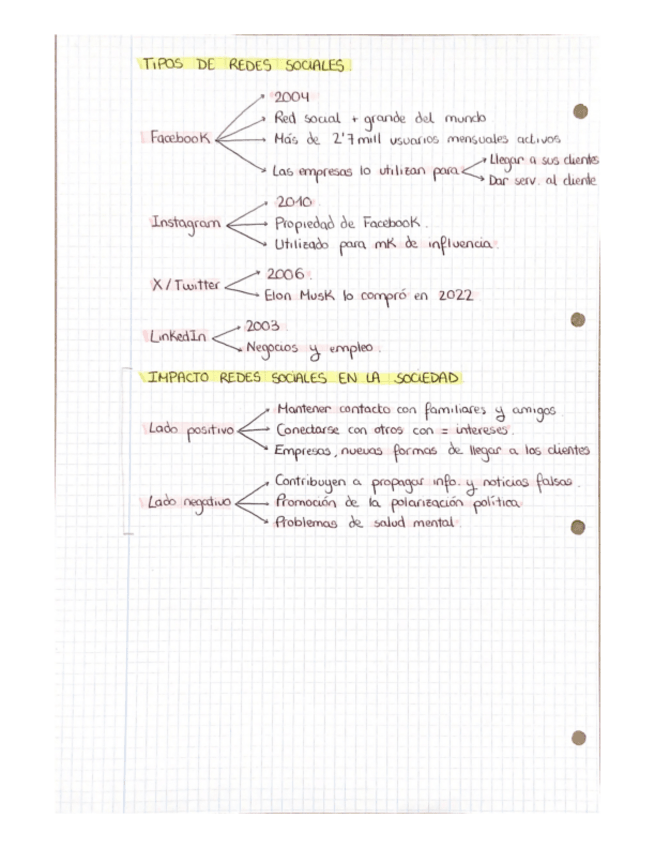 TIPOS DE REDES SOCIALES
2004
Red social + grande del mundo
Facebook
Más de 2'7 mill usuarios mensuales activos
Las empresas lo utilizan para
Llegar a sus clientes
Dar serv. al cliente
2010.
Instagram
Propiedad de Facebook.
Utilizado para mk de influencia.
X / Twitter
2006.
Elon Musk lo compró en 2022
LinkedIn
2003
Negocios y empleo.
IMPACTO REDES SOCIALES EN LA SOCIEDAD
Mantener contacto con familiares y amigos
Lado positivo
Conectarse con otros con = intereses.
Empresas, nuevas formas de llegar a los clientes
Contribuyen a propagar info. y noticias falsas.
Lado negativo
Promoción de la polarización política
Problemas de salud mental